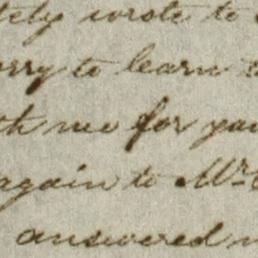 tely wrote to
orry to learn
th me for you
again to Mr.
answered